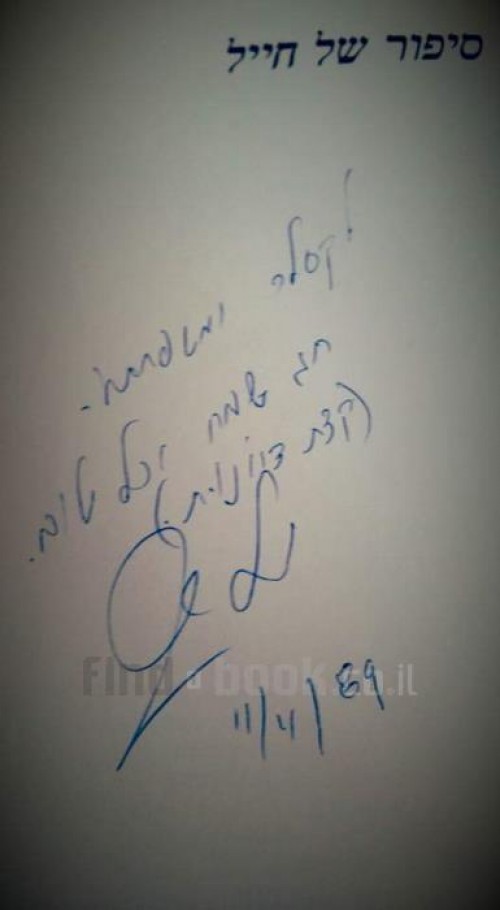 סיפור של חייל
לקסלר ומשפחתו -
חג שמח וכל טוב.
(קצת
find a book.co.il
11/4/89